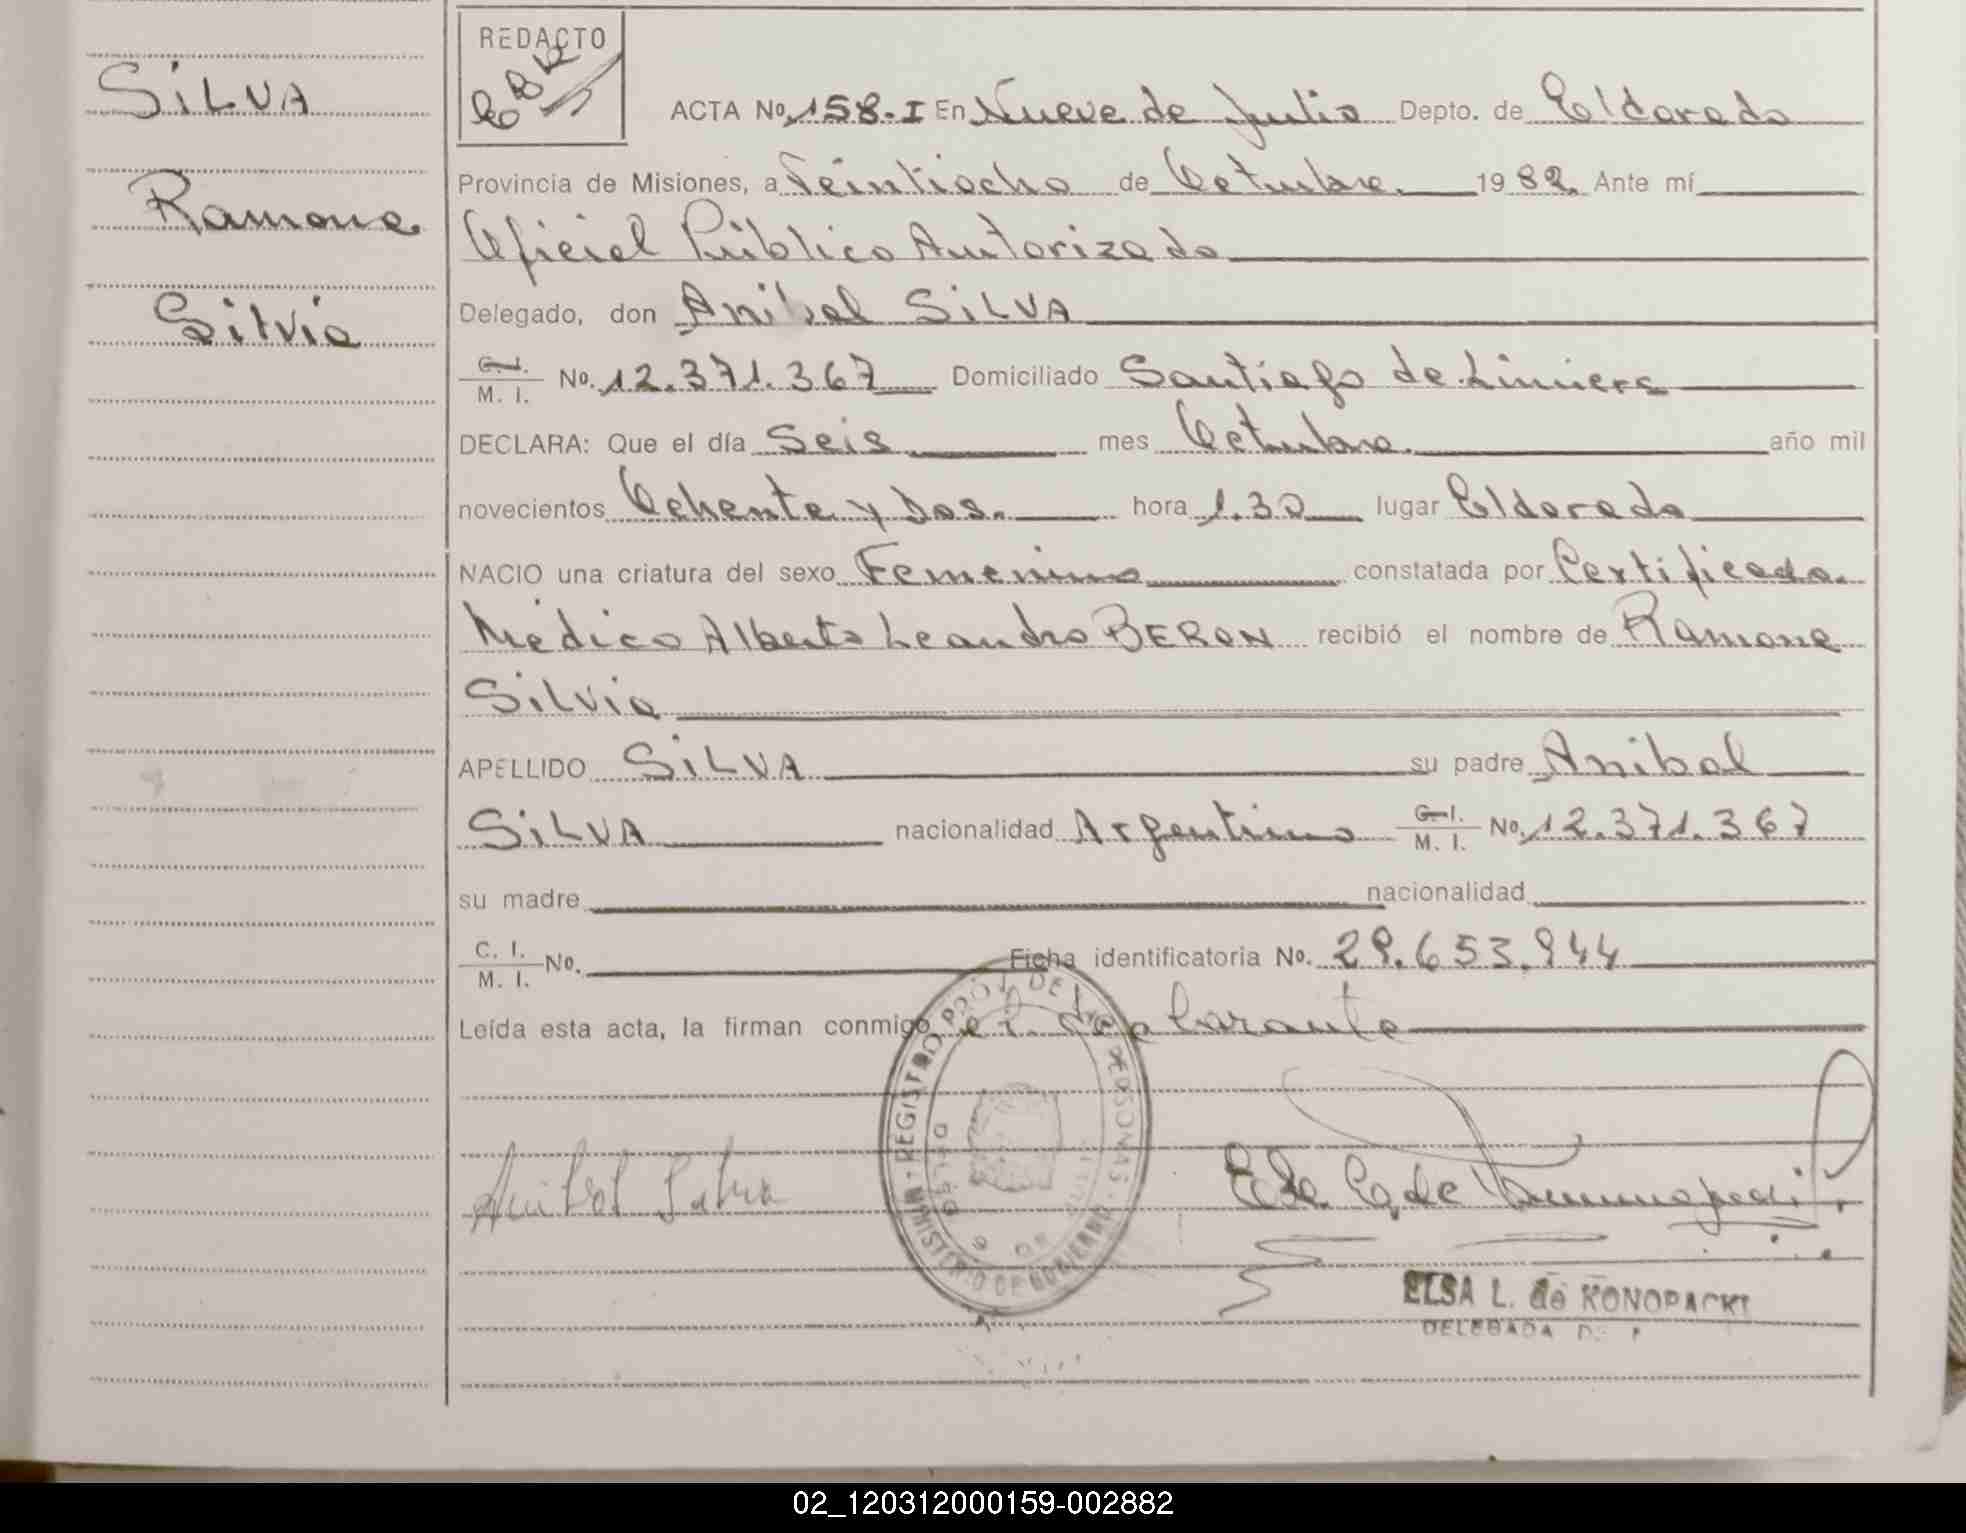 SILVA
Ramona
Silvia
REDACTO
ACTA No. 158-I En Nueve de Julio Depto. de Eldorado
Provincia de Misiones, a Veintiocho de Octubre 1982. Ante mí
Oficial Público Autorizado
Delegado, don Anibal SILVA
C. I. / M. I. No. 12.371.367 Domiciliado Santiago de Liniers
DECLARA: Que el día Seis mes Octubre. año mil
novecientos Ochenta y Dos. hora 1.30 lugar Eldorado
NACIO una criatura del sexo Femenino constatada por Certificado.
Médico Alberto Leandro BERON recibió el nombre de Ramona
Silvia
APELLIDO SILVA su padre Anibal
SILVA nacionalidad Argentino C. I. / M. I. No. 12.371.367
su madre nacionalidad
C. I. / M. I. No. Ficha identificatoria No. 29.653.944
Leída esta acta, la firman conmigo, el declarante
REGISTRO PROV. DE LAS PERSONAS - MINISTERIO DE GOBIERNO
Anibal Silva
ELSA L. de KONOPACKI
DELEGADA
02_120312000159-002882